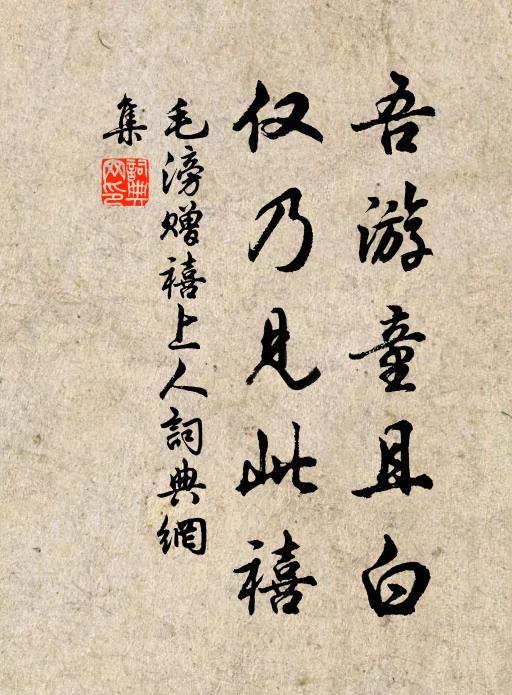 吾游童且白
仅乃見此禧
毛滂贈禧上人詞典網
集
詞典網印